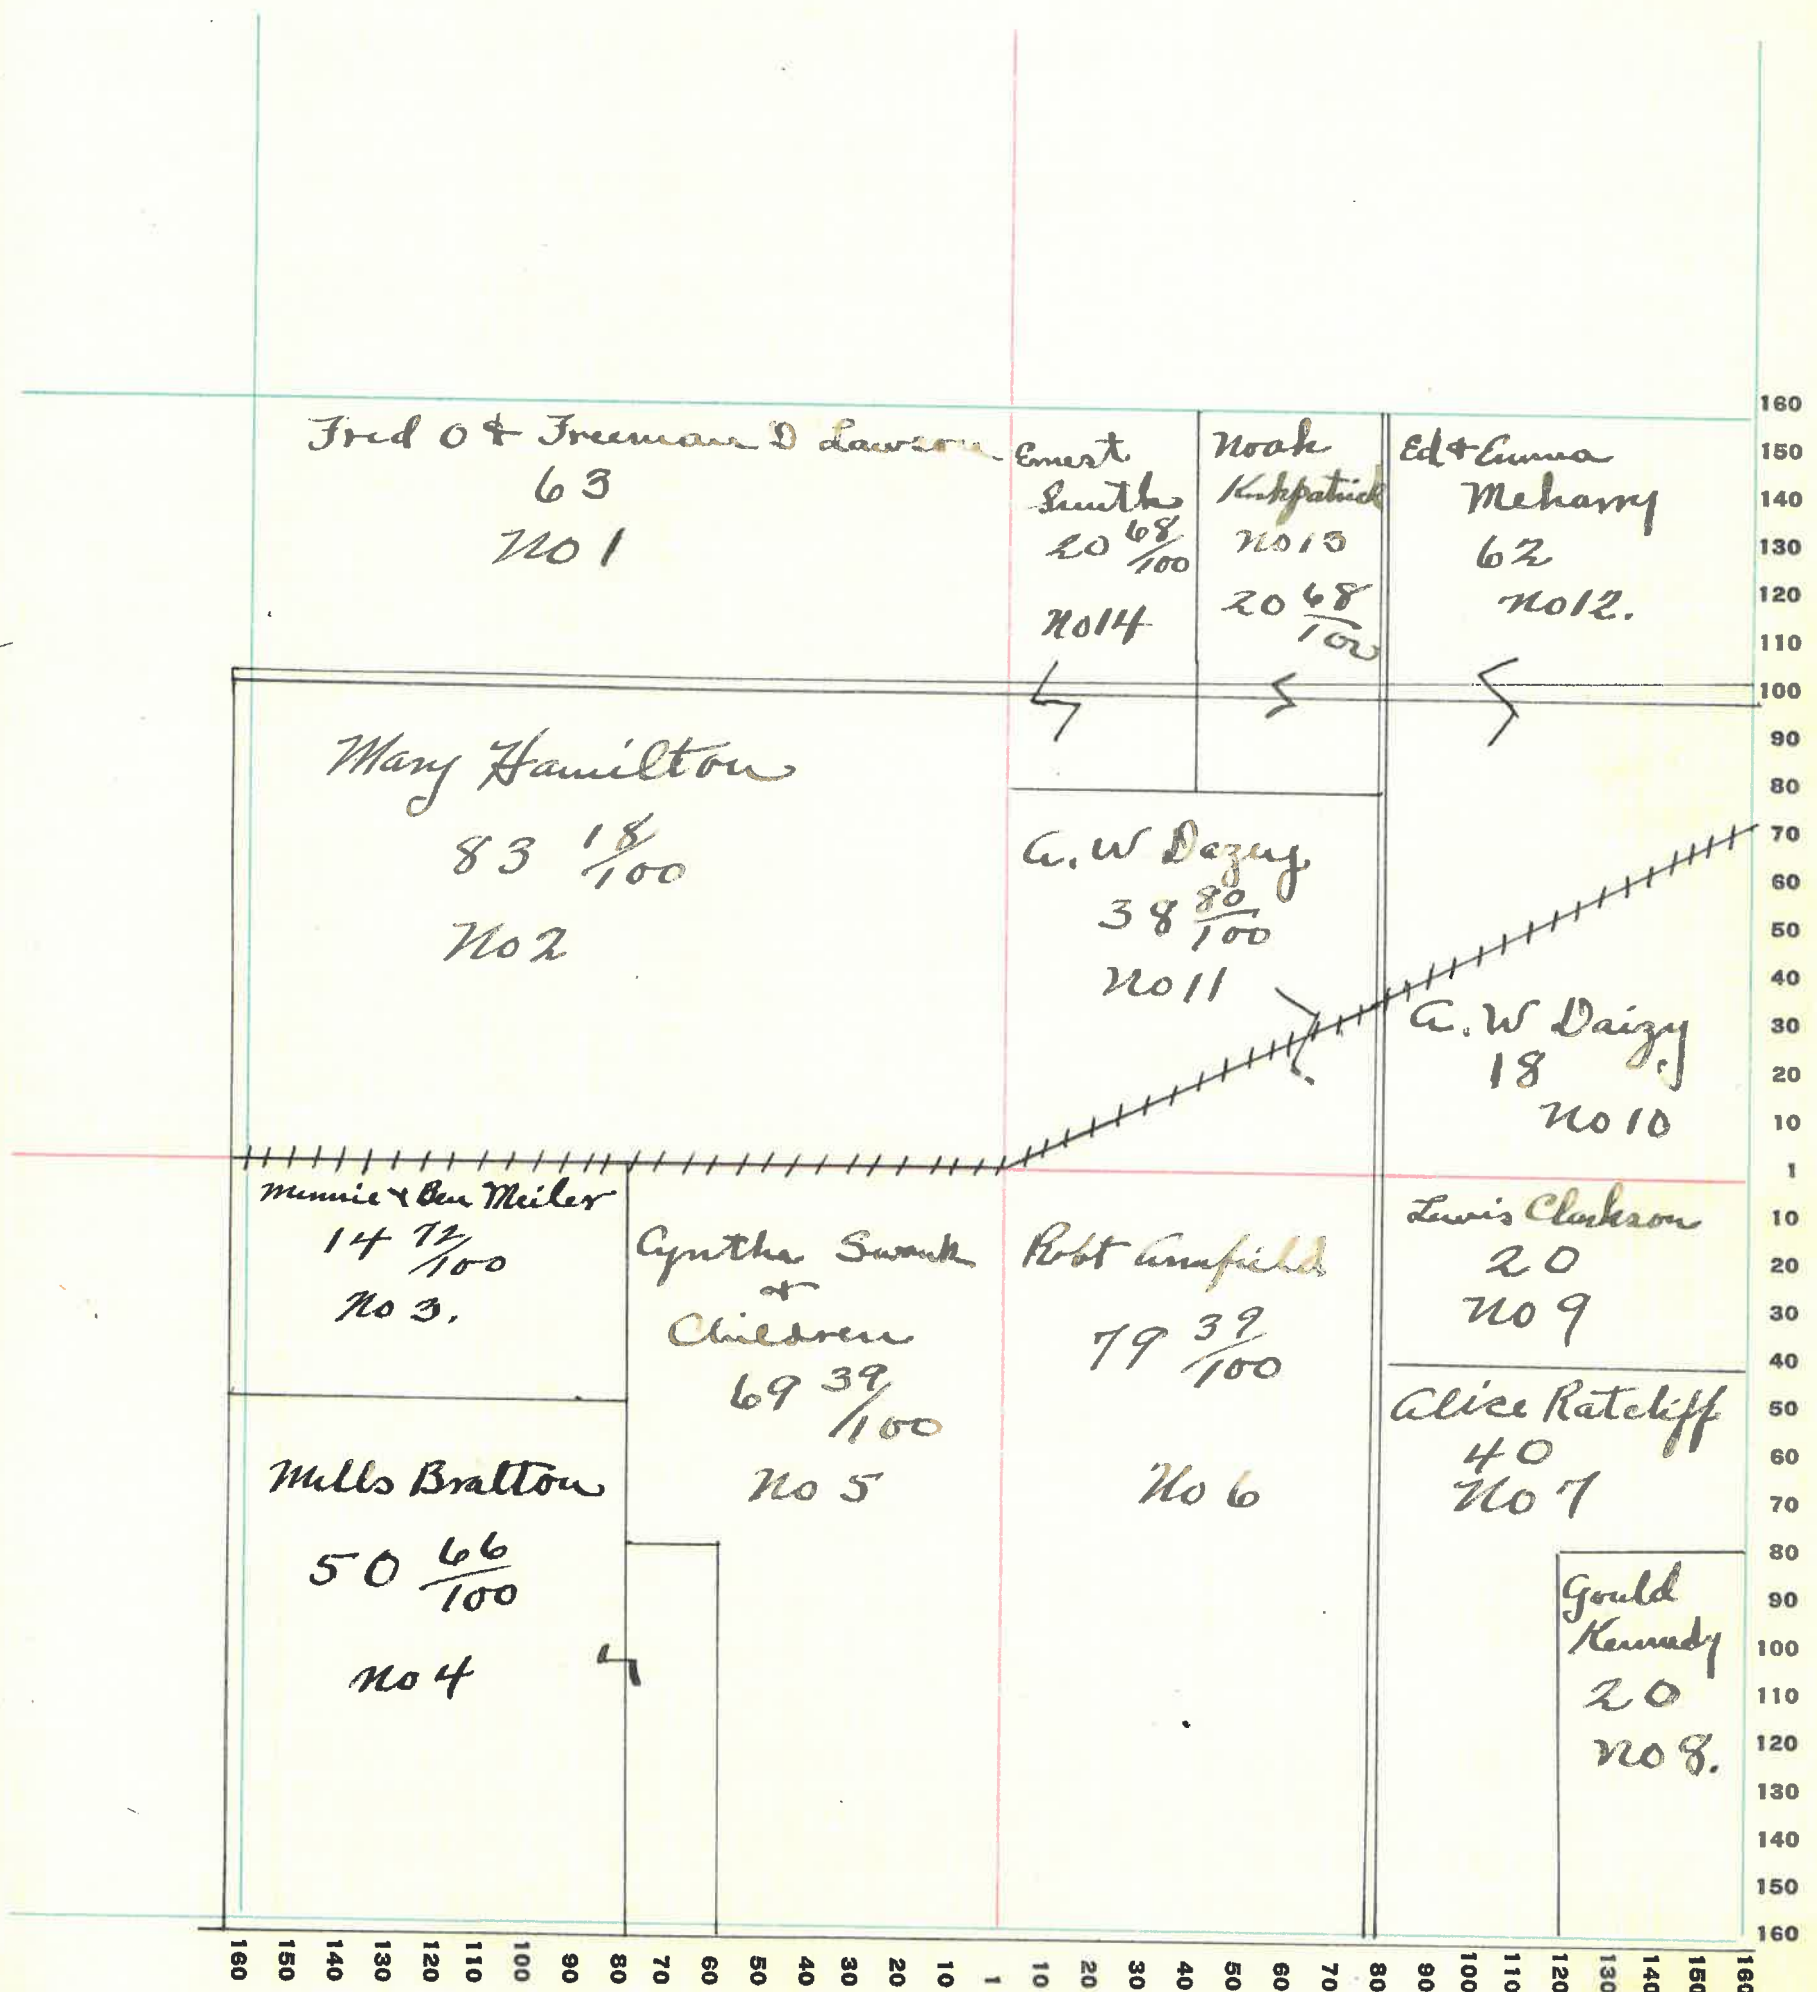 Fred O & Freeman D Lawson
63
No 1
Ernest
Smith
20 68/100
No 14
Noah
Kirkpatrick
No 13
20 68/100
Ed & Emma
Meharry
62
No 12.
Mary Hamilton
83 18/100
No 2
A. W Dazey
38 80/100
No 11
A. W Daizy
18
No 10
Minnie & Ben Meiler
14 72/100
No 3.
Cyntha Swank
&
Children
69 39/100
No 5
Robt Armfield
79 39/100
No 6
Lewis Clarkson
20
No 9
Alice Ratcliff
40
No 7
Mills Bratton
50 66/100
No 4
Gould
Kennedy
20
No 8.
160
150
140
130
120
110
100
90
80
70
60
50
40
30
20
10
1
10
20
30
40
50
60
70
80
90
100
110
120
130
140
150
160
160 150 140 130 120 110 100 90 80 70 60 50 40 30 20 10 1 10 20 30 40 50 60 70 80 90 100 110 120 130 140 150 160